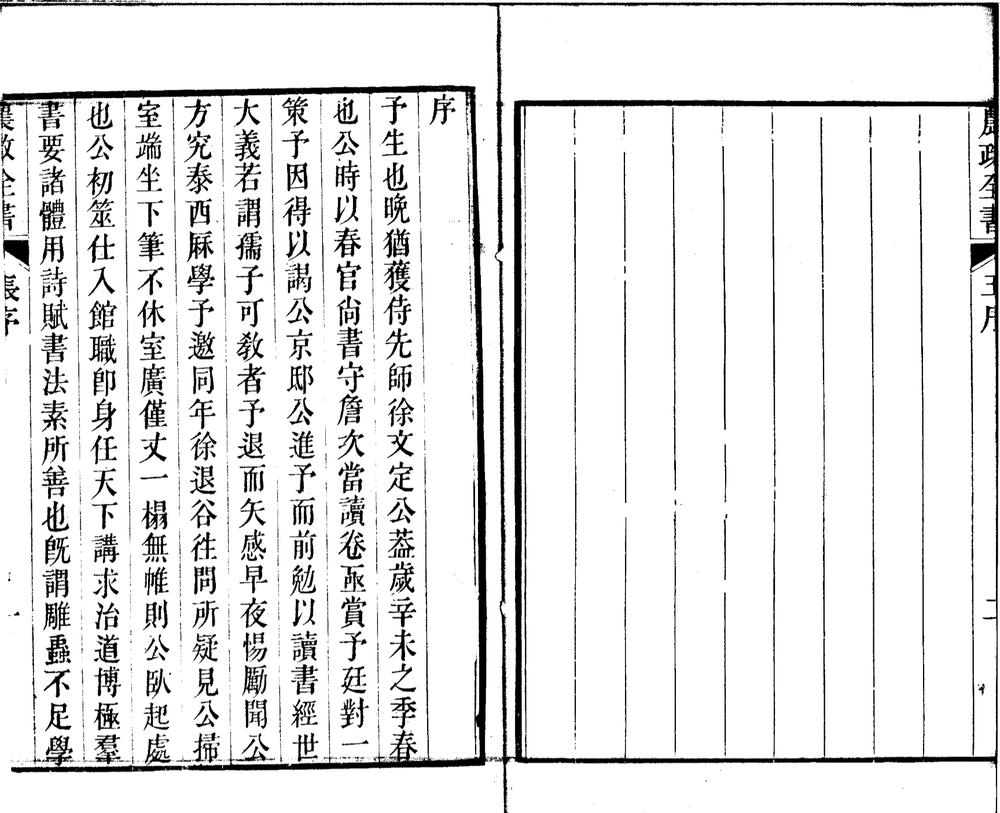 農政全書 王序 二
序
予生也晚猶獲侍先師徐文定公葢歲辛未之季春
也公時以春官尚書守詹次當讀卷亟賞予廷對一
策予因得以謁公京邸公進予而前勉以讀書經世
大義若謂孺子可敎者予退而矢感早夜惕勵聞公
方究泰西厤學予邀同年徐退谷徃問所疑見公掃
室端坐下筆不休室廣僅丈一榻無帷則公臥起處
也公初筮仕入館職卽身任天下講求治道博極羣
書要諸體用詩賦書法素所善也旣謂雕蟲不足學
農政全書 張序 一